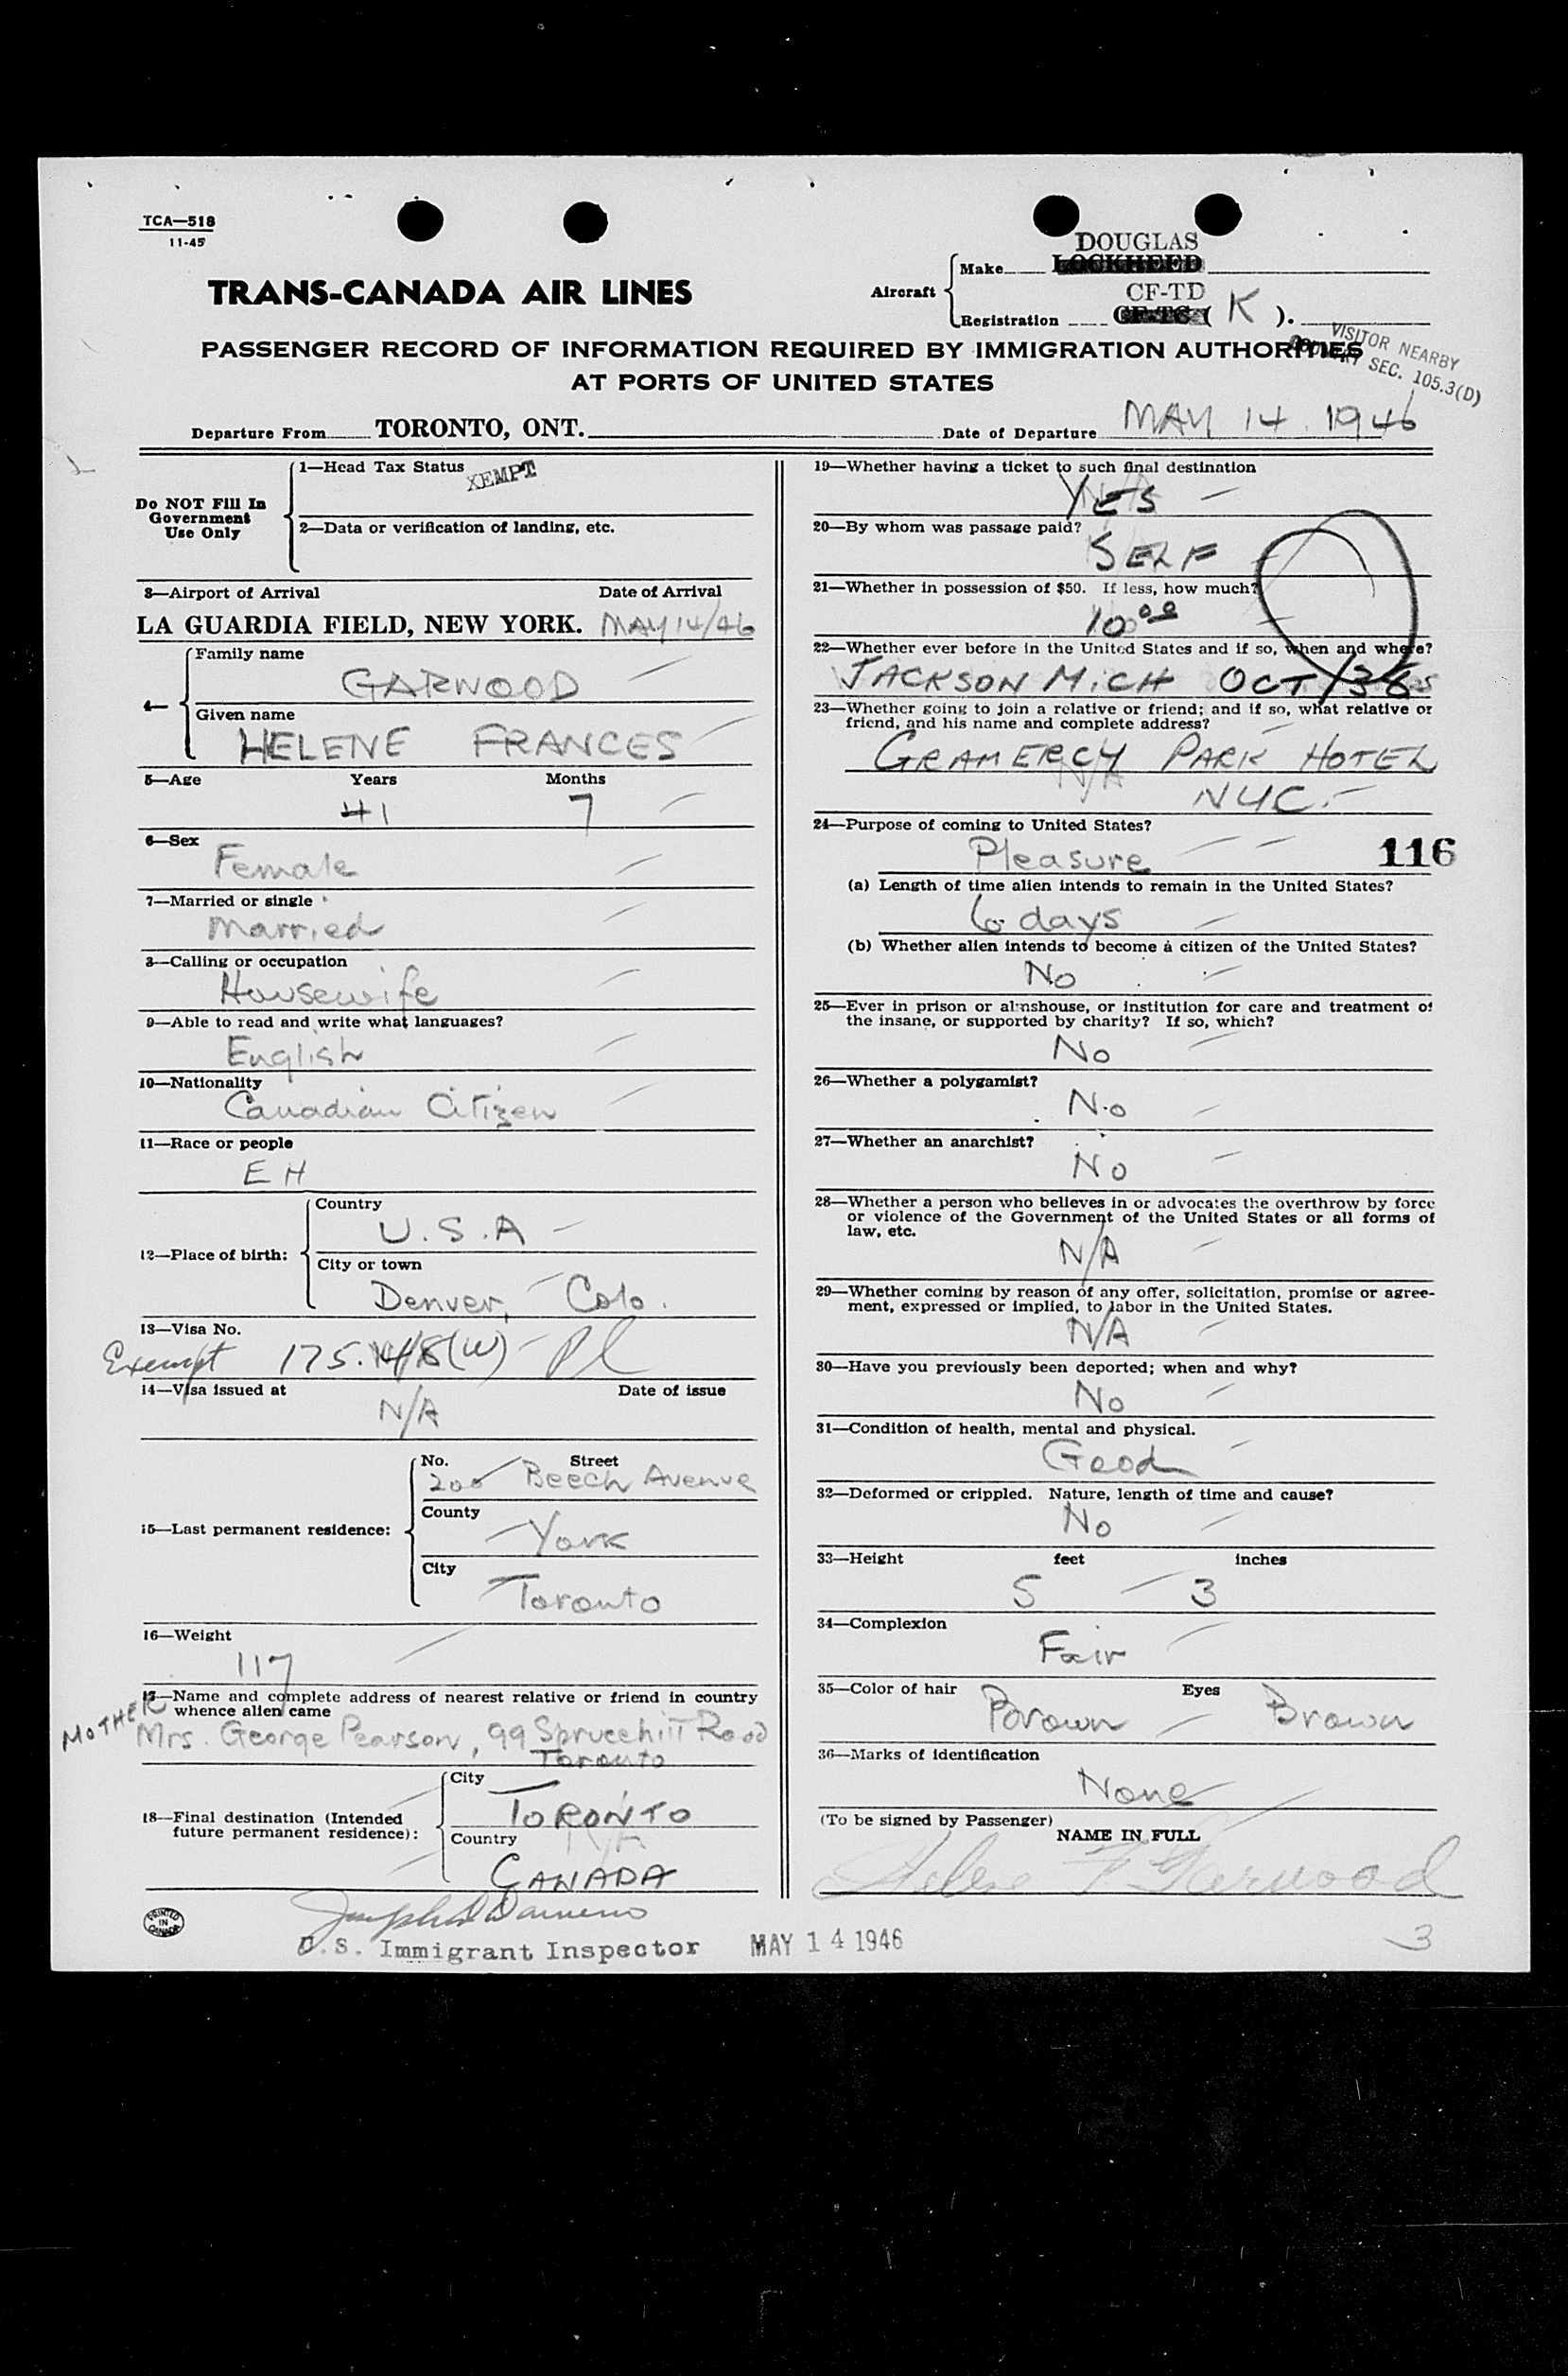 TCA—518
11-45
DOUGLAS
Make LOCKHEED
Aircraft
CF-TD
Registration CF-TC ( K ).
TRANS-CANADA AIR LINES
PASSENGER RECORD OF INFORMATION REQUIRED BY IMMIGRATION AUTHORITIES
AT PORTS OF UNITED STATES
VISITOR NEARBY
SEC. 105.3(D)
Departure From TORONTO, ONT. Date of Departure MAY 14. 1946
Do NOT Fill In
Government
Use Only
1—Head Tax Status XEMPT
2—Data or verification of landing, etc.
3—Airport of Arrival Date of Arrival
LA GUARDIA FIELD, NEW YORK. MAY 14/46
4—
Family name
GARWOOD
Given name
HELENE FRANCES
5—Age Years Months
41 7
6—Sex
Female
7—Married or single
Married
8—Calling or occupation
Housewife
9—Able to read and write what languages?
English
10—Nationality
Canadian Citizen
11—Race or people
EH
12—Place of birth:
Country
U.S.A
City or town
Denver, Colo.
13—Visa No.
Exempt 175. (W)
14—Visa issued at Date of issue
N/A
15—Last permanent residence:
No. Street
200 Beech Avenue
County
York
City
Toronto
16—Weight
117
17—Name and complete address of nearest relative or friend in country
whence alien came
MOTHER
Mrs. George Pearson, 99 Sprucehill Road
Toronto
18—Final destination (Intended
future permanent residence):
City
TORONTO
Country
N/A
CANADA
19—Whether having a ticket to such final destination
YES
20—By whom was passage paid?
SELF
21—Whether in possession of $50. If less, how much?
10 00
22—Whether ever before in the United States and if so, when and where?
JACKSON MICH OCT/36
23—Whether going to join a relative or friend; and if so, what relative or
friend, and his name and complete address?
GRAMERCY PARK HOTEL
N/A
NYC.
24—Purpose of coming to United States?
Pleasure
116
(a) Length of time alien intends to remain in the United States?
6 days
(b) Whether alien intends to become a citizen of the United States?
No
25—Ever in prison or almshouse, or institution for care and treatment of
the insane, or supported by charity? If so, which?
No
26—Whether a polygamist?
No
27—Whether an anarchist?
No
28—Whether a person who believes in or advocates the overthrow by force
or violence of the Government of the United States or all forms of
law, etc.
N/A
29—Whether coming by reason of any offer, solicitation, promise or agree-
ment, expressed or implied, to labor in the United States.
N/A
30—Have you previously been deported; when and why?
No
31—Condition of health, mental and physical.
Good
32—Deformed or crippled. Nature, length of time and cause?
No
33—Height feet inches
5 3
34—Complexion
Fair
35—Color of hair Eyes
Brown Brown
36—Marks of identification
None
(To be signed by Passenger)
NAME IN FULL
Helene F Garwood
PRINTED IN CANADA
U.S. Immigrant Inspector MAY 14 1946
3